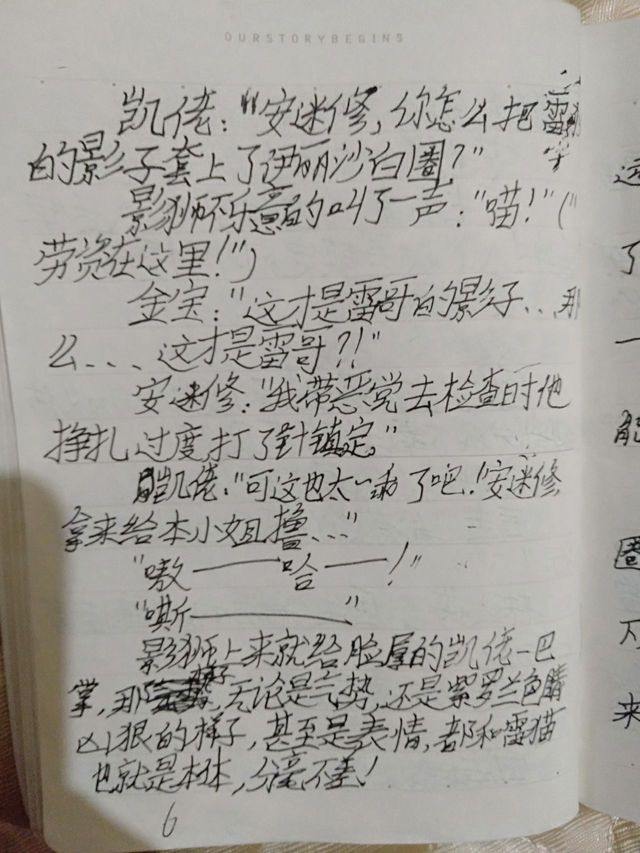 OURSTORYBEGINS
凯佬："安迷修，你怎么把雷狮
的影子套上了伊丽莎白圈？"
影狮不乐意的叫了一声："喵！"("
劳资在这里！")
金宝："这才是雷哥的影子...那
么...这才是雷哥？！"
安迷修："我带恶党去检查时他
挣扎过度，打了针镇定。"
凯佬："可这也太 了吧！安迷修，
拿来给本小姐撸..."
"嗷——哈——！"
"嘶——"
影狮上来就给脸厚的凯佬一巴
掌，那样子，无论是气势，还是紫罗兰色瞳
凶狠的样子，甚至是表情，都和雷猫
也就是本体，分毫不差！
6
这
了
一
能
圈
不
来